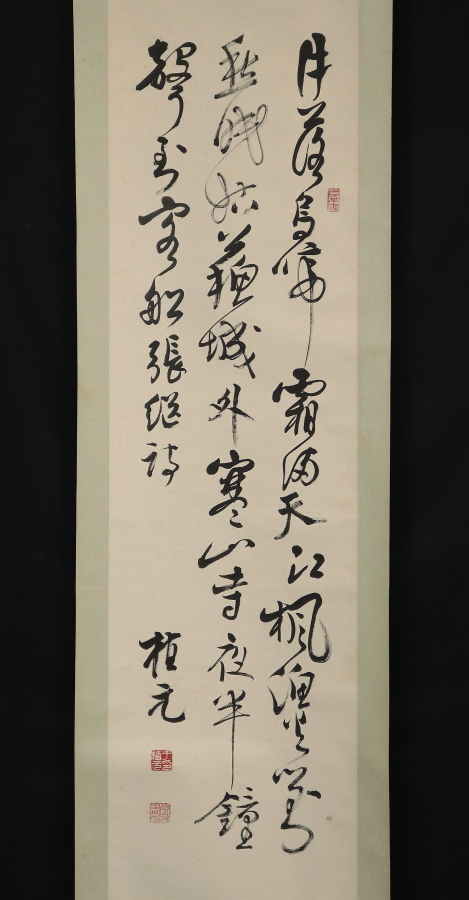 月落烏啼霜滿天江楓漁火對
愁眠姑蘇城外寒山寺夜半鐘
聲到客船張継詩
植元